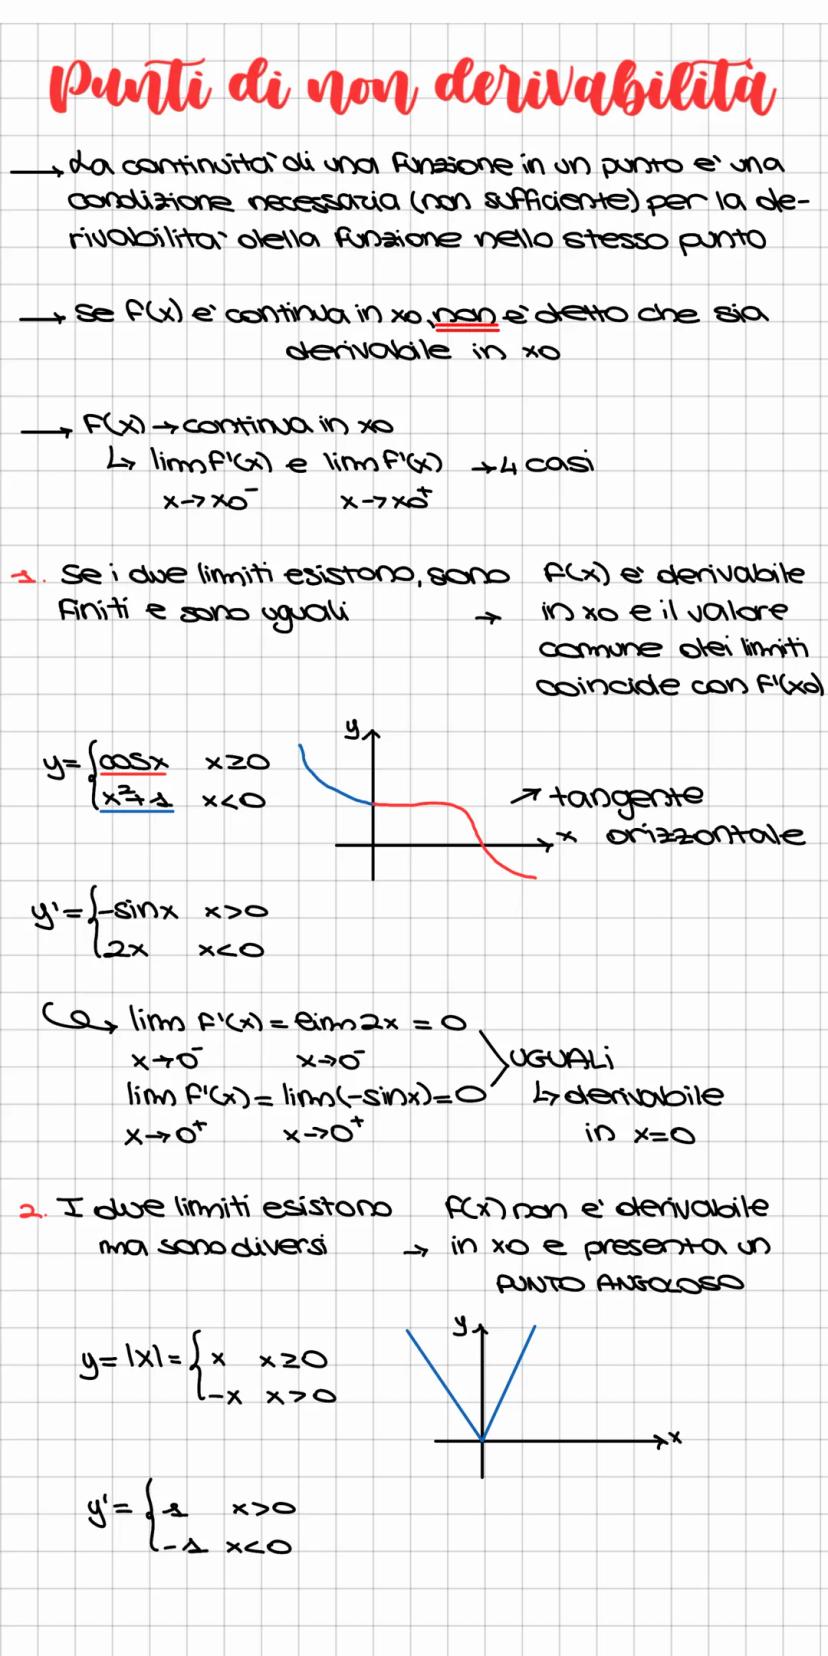 Punti di non derivabilità
→ La continuità di una funzione in un punto è una
condizione necessaria (non sufficiente) per la de-
rivabilità della funzione nello stesso punto
→ Se f(x) è continua in x0, non è detto che sia
derivabile in x0
→ F(x) → continua in x0
↳ lim f'(x) e lim f'(x) → 4 casi
x→x0⁻ x→x0⁺
1. Se i due limiti esistono, sono
finiti e sono uguali →
f(x) è derivabile
in x0 e il valore
comune dei limiti
coincide con f'(x0)
y= { cosx x≥0
x²+1 x<0
y
x
↗ tangente
orizzontale
y'= { -sinx x>0
2x x<0
↪ lim f'(x) = lim 2x = 0
x→0⁻ x→0⁻
lim f'(x) = lim (-sinx) = 0
x→0⁺ x→0⁺
UGUALI
↳ derivabile
in x=0
2. I due limiti esistono
ma sono diversi →
f(x) non è derivabile
in x0 e presenta un
PUNTO ANGOLOSO
y= |x| = { x x≥0
-x x>0
y
x
y'= { 1 x>0
-1 x<0